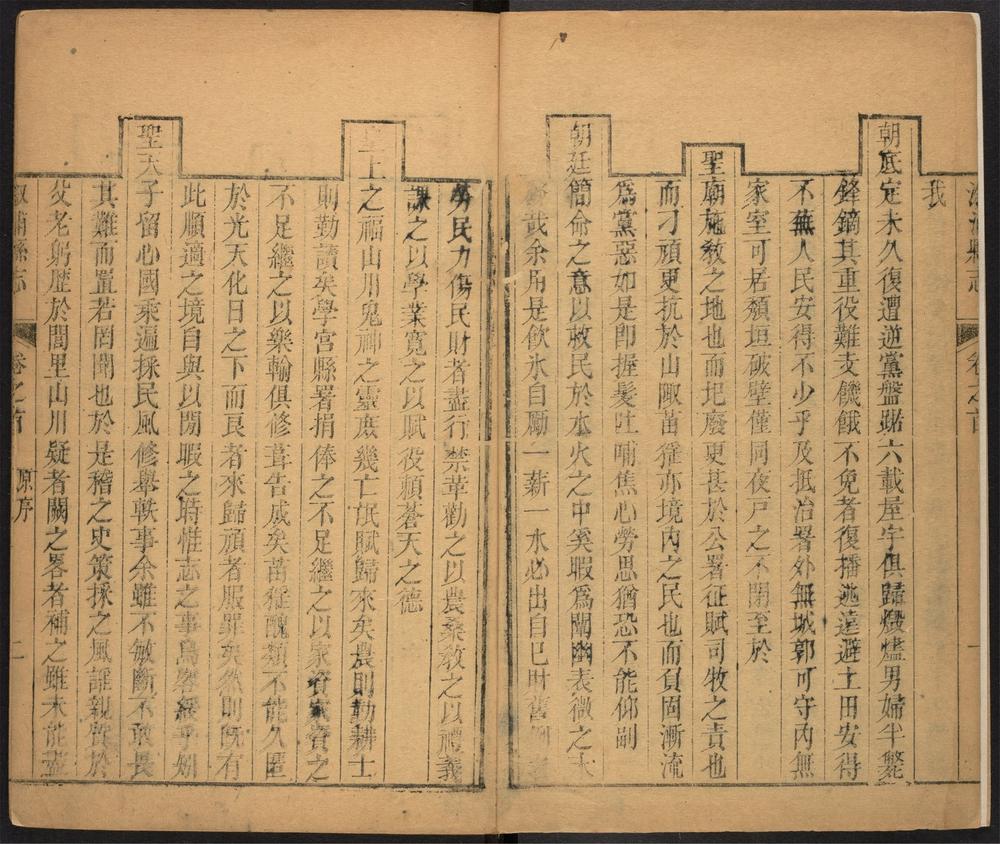 縣志 卷之首
我
朝底定未久復遭逆黨盤踞六載屋宇俱歸燬爐男婦半斃
鋒鏑其重役難支饑餓不免者復播逃遠避土田安得
不蕪人民安得不少乎及抵治署外無城郭可守內無
家室可居頹垣破壁僅同夜戸之不閉至於
聖廟施教之地也而圮廢更甚於公署征賦司牧之責也
而刁頑更抗於山陬苗猺亦境內之民也而負固漸流
爲黨惡如是卽握髮吐哺焦心勞思猶恐不能仰副
朝廷簡命之意以救民於水火之中奚暇爲闡幽表微之
哉余用是飲氷自勵一薪一水必出自已財舊
勞民力傷民財者盡行禁革勸之以農桑教之以禮義
課之以學業寬之以賦役賴蒼天之德
上之福山川鬼神之靈庶幾亡氓賦歸來矣農則勤耕士
則勤讀矣學宮縣署捐俸之不足繼之以家資之
不足繼之以樂輸俱修葺告成矣苗猺醜類不能久匿
於光天化日之下而良者來歸頑者服罪矣然則旣有
此順適之境自與以閒暇之時惟志之事烏容緩乎
聖天子留心國乘遍採民風修舉軼事余雖不敏斷不敢畏
其難而置若罔聞也於是稽之史策採之風謡親質於
父老躬歴於閭里山川疑者闕之畧者補之雖未能盡
溆浦縣志 卷之首 原序 二